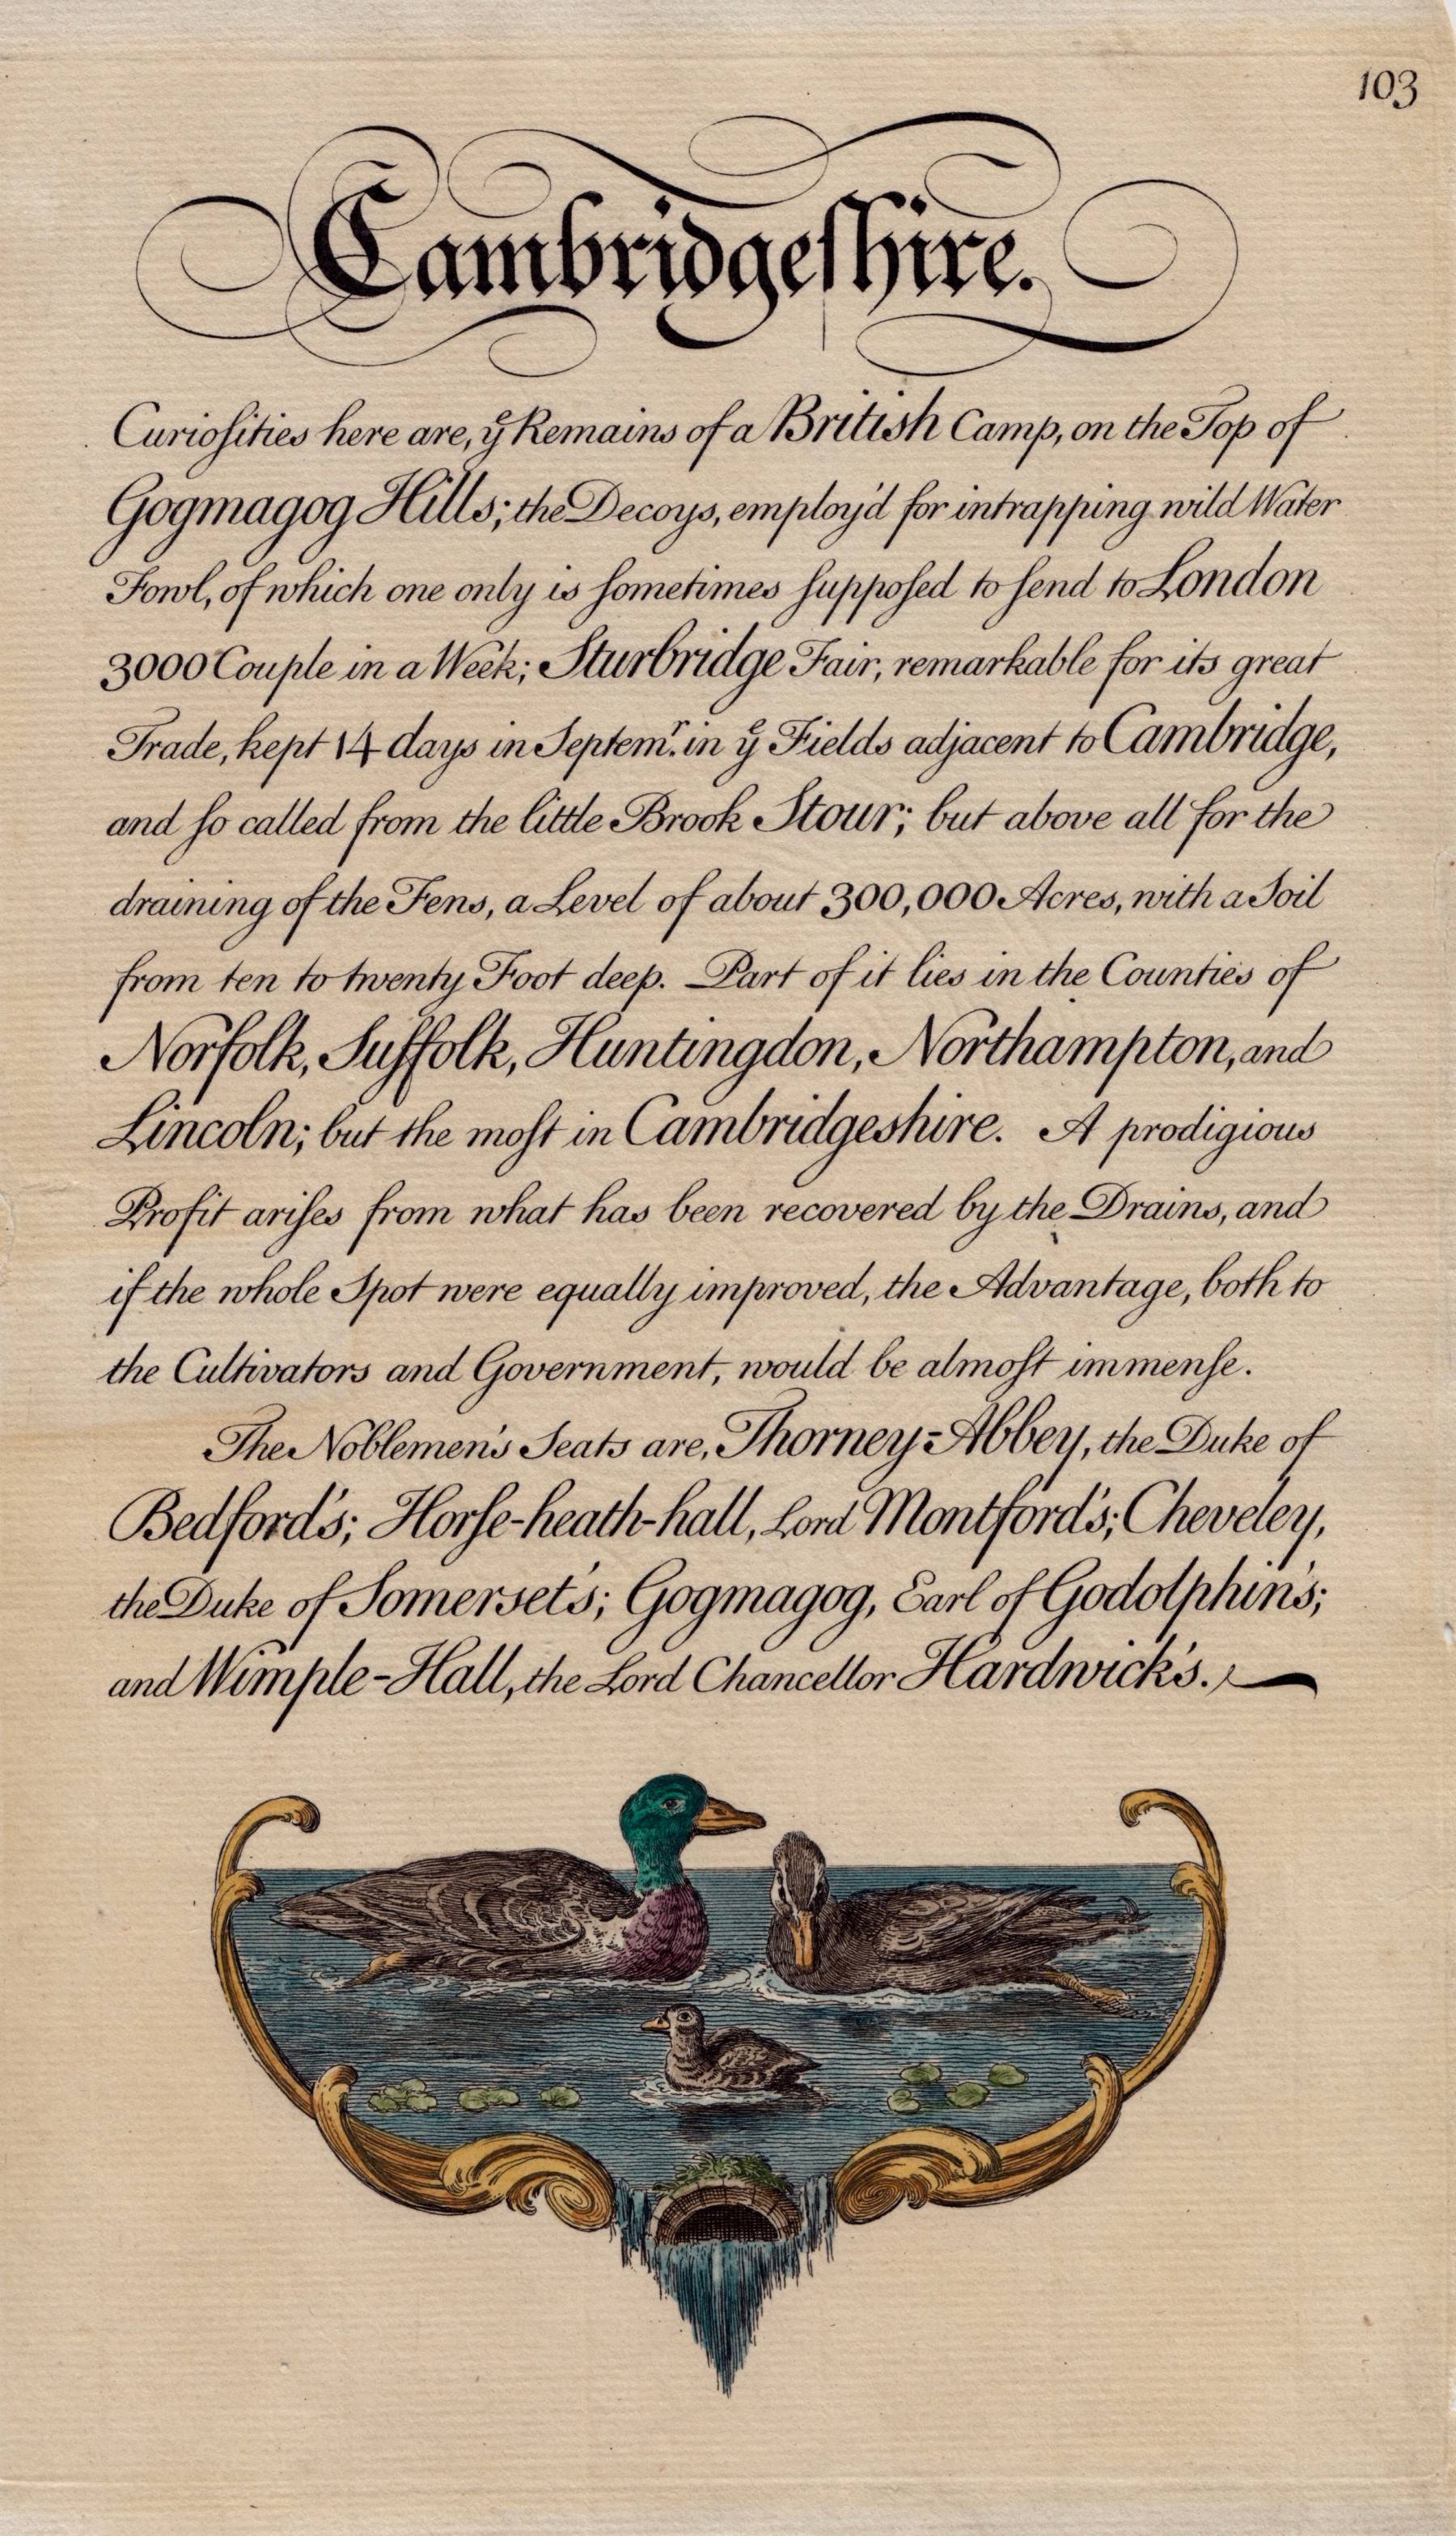 103
Cambridgeſhire.
Curioſities here are, yͤ Remains of a British Camp, on the Top of
Gogmagog Hills; the Decoys, employ'd for intrapping wild Water
Fowl, of which one only is ſometimes ſuppoſed to ſend to London
3000 Couple in a Week; Sturbridge Fair, remarkable for its great
Trade, kept 14 days in Septemʳ. in yͤ Fields adjacent to Cambridge,
and ſo called from the little Brook Stour; but above all for the
draining of the Fens, a Level of about 300,000 Acres, with a Soil
from ten to twenty Foot deep. Part of it lies in the Counties of
Norfolk, Suffolk, Huntingdon, Northampton, and
Lincoln; but the moſt in Cambridgeshire. A prodigious
Profit ariſes from what has been recovered by the Drains, and
if the whole Spot were equally improved, the Advantage, both to
the Cultivators and Government, would be almoſt immenſe.
The Noblemen's Seats are, Thorney-Abbey, the Duke of
Bedford's; Horſe-heath-hall, Lord Montford's; Cheveley,
the Duke of Somerset's; Gogmagog, Earl of Godolphin's;
and Wimple-Hall, the Lord Chancellor Hardwick's.